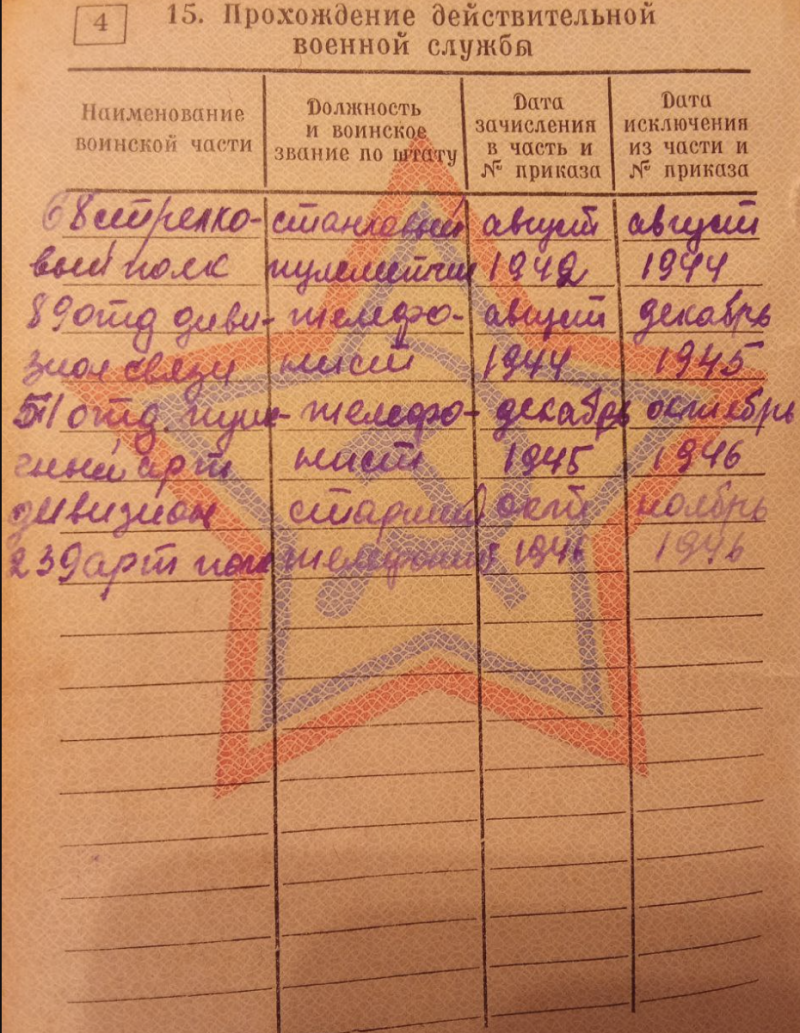 4
15. Прохождение действительной
военной службы
Наименование
воинской части
Должность
и воинское
звание по штату
Дата
зачисления
в часть и
№ приказа
Дата
исключения
из части и
№ приказа
68 стрелко- станковый август август
вый полк пулеметчик 1942 1944
89 отд диви- телефо- август декабрь
зион связи нист 1944 1945
отд. телефо- декабрь октябрь
арт нист 1945 1946
дивизион старший окт ноябрь
239 арт полк телефонист 1946 1946